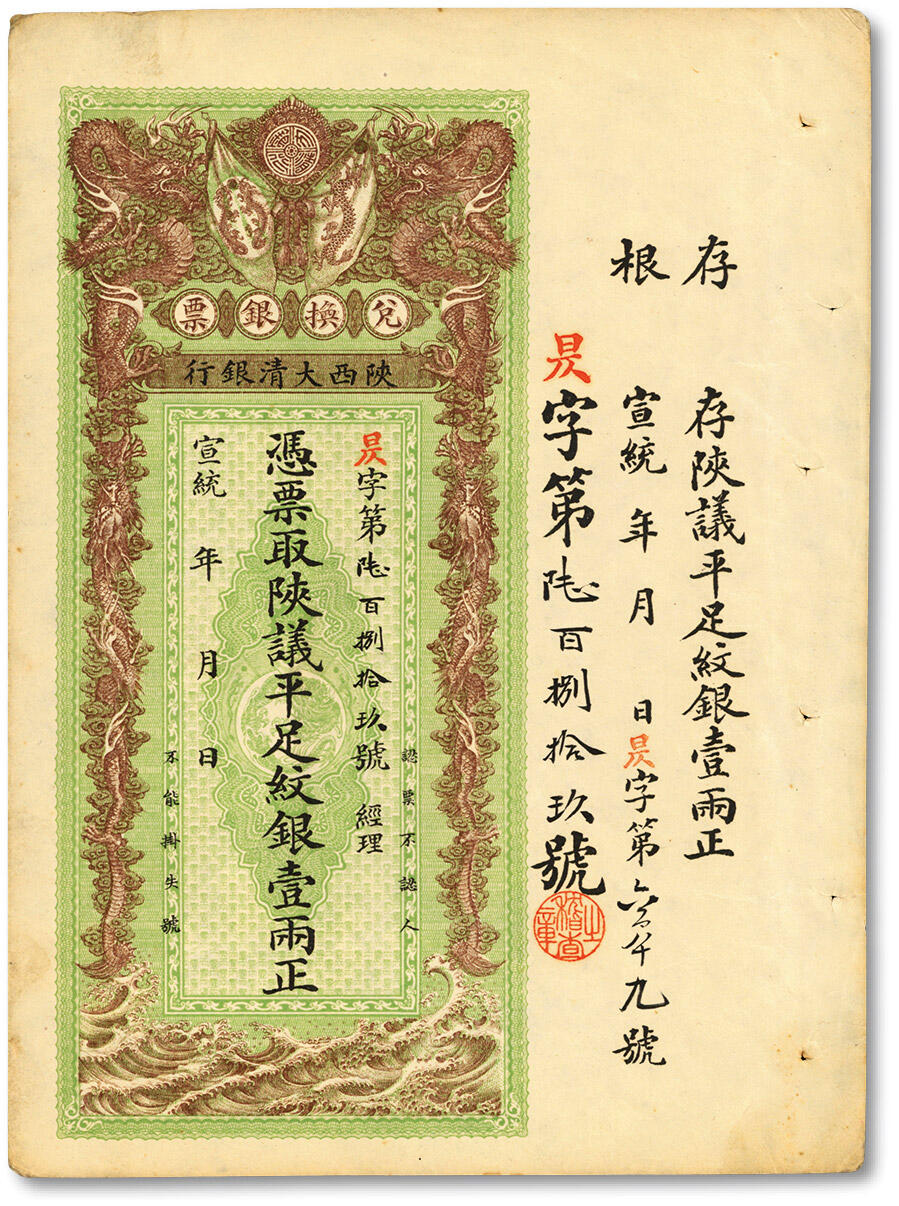 存根
存陝議平足紋銀壹兩正
宣統 年 月 日昃字第六百八十九號
昃字第陸百捌拾玖號
稽查之章
兌換銀票
陝西大清銀行
認票不認人
昃字第陸百捌拾玖號 經理
憑票取陝議平足紋銀壹兩正
宣統 年 月 日
不能掛失號